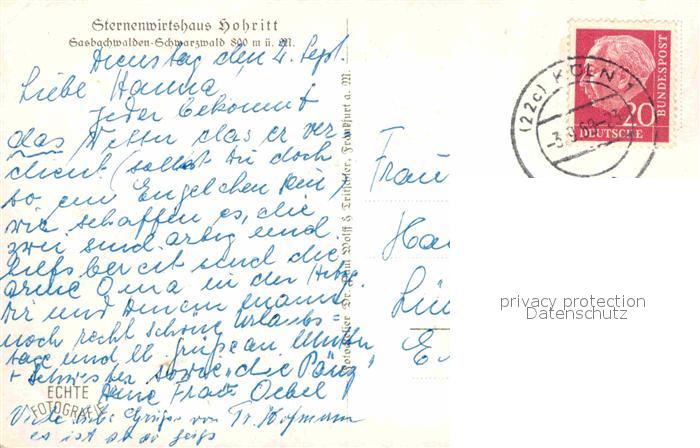 Sternenwirtshaus Hohritt
Sasbachwalden-Schwarzwald 800 m ü. M.
Dienstag den 4. Sept
Liebe Hanna,
jeder bekommt
das Wetter das er ver
dient (solltest Du doch
so ein Engelchen sein)
wir schaffen es, die
zwei sind artig und
hilfsbereit und die
arme Oma in der
Dir und Deinem Mann
noch recht schöne Urlaubs=
tage und lb. Grüße an Mutter
+ Schwester sowie die
Deine Frau Oebel
Viele lb. Grüße von Fr. Hofmann
es ist so
ECHTE
FOTOGRAFIE
Fotoatelier Dr. Paul Wolff & Tritschler, Frankfurt a. M.
Frau
(22c) KÖLN 1
20
DEUTSCHE
BUNDESPOST
privacy protection
Datenschutz